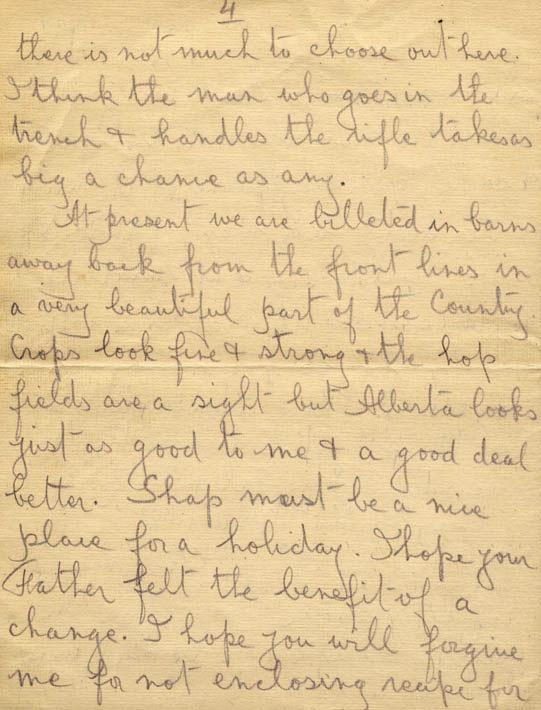 4
there is not much to choose out here.
I think the man who goes in the
trench & handles the rifle takes as
big a chance as any.
At present we are billeted in barns
away back from the front lines in
a very beautiful part of the County.
Crops look fine & strong & the hop
fields are a sight but Alberta looks
just as good to me & a good deal
better. Shap must be a nice
place for a holiday. I hope your
Father felt the benefit of a
change. I hope you will forgive
me for not enclosing recipe for